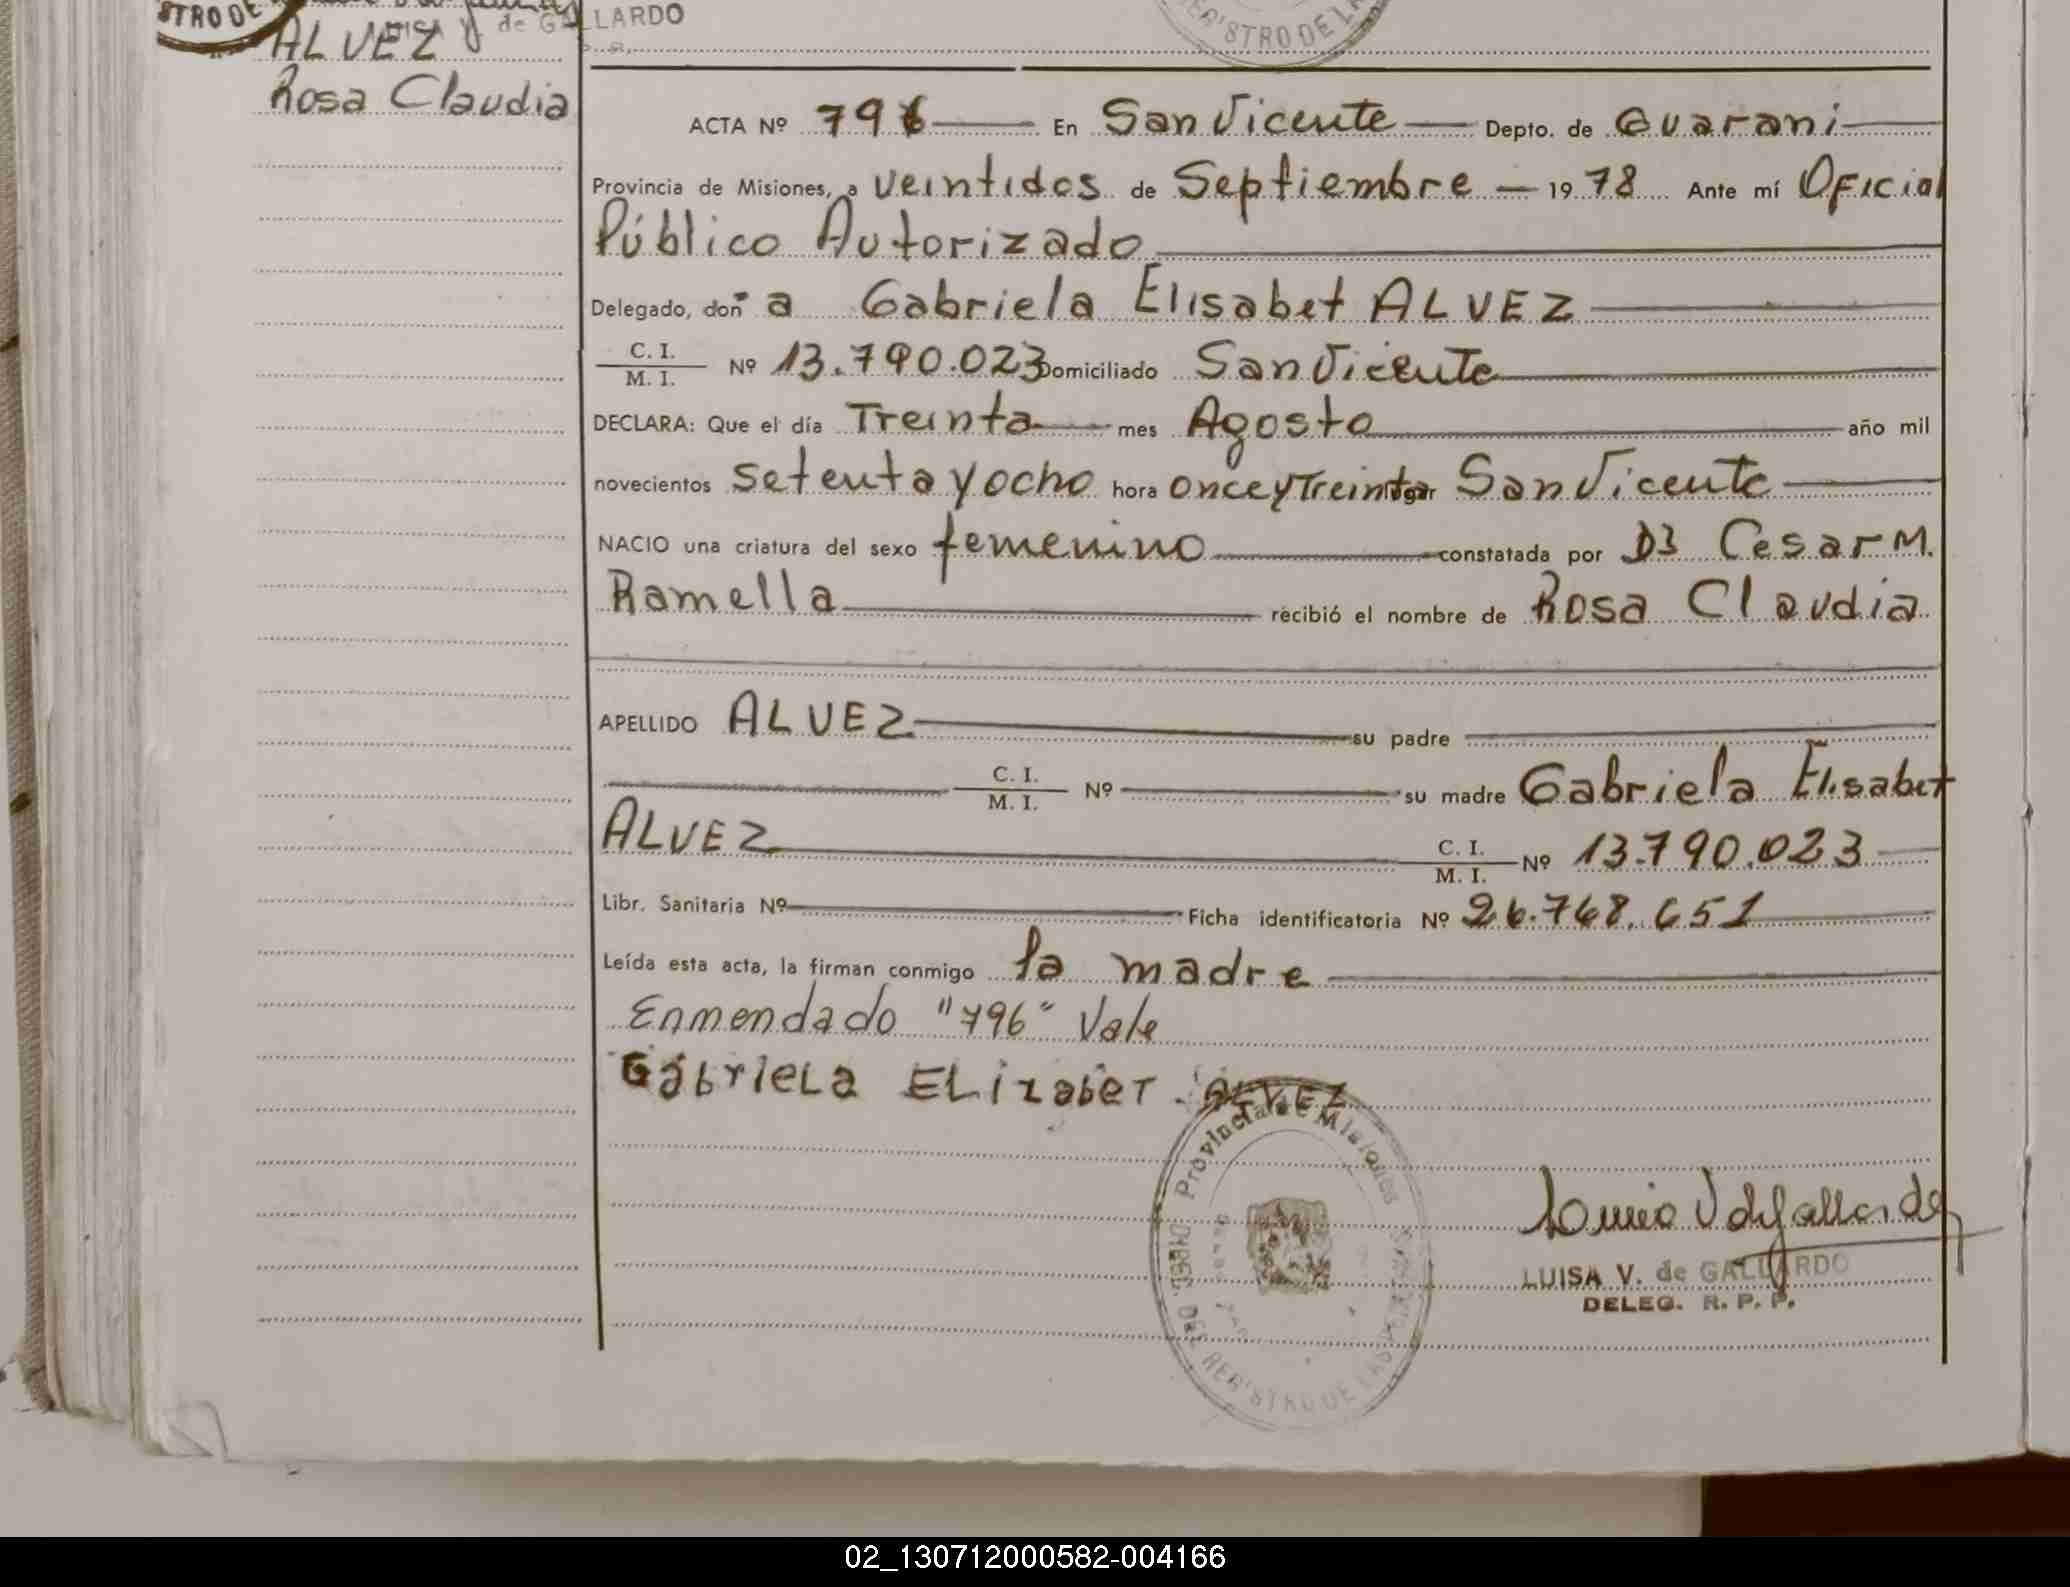 STRO DE
de GALLARDO
REG'STRO DE LA
ALVEZ
Rosa Claudia
ACTA Nº 796 En San Vicente Depto. de Guarani
Provincia de Misiones, a veintidos de Septiembre 1978 Ante mí Oficial
Público Autorizado
Delegado, don a Gabriela Elisabet ALVEZ
C. I.
M. I. Nº 13.790.023 Domiciliado San Vicente
DECLARA: Que el día Treinta mes Agosto año mil
novecientos setenta y ocho hora once y Treinta lugar San Vicente
NACIO una criatura del sexo femenino constatada por Dr Cesar M.
Ramella recibió el nombre de Rosa Claudia
APELLIDO ALVEZ su padre
C. I.
M. I. Nº su madre Gabriela Elisabet
ALVEZ C. I.
M. I. Nº 13.790.023
Libr. Sanitaria Nº Ficha identificatoria Nº 26.768.651
Leída esta acta, la firman conmigo la madre
Enmendado "796" Vale
GabrieLa ELizabeT ALVEZ
Provincia de Misiones
DIREC. DEL REG'STRO DE LAS PERSONAS
LUISA V. de GALLARDO
DELEG. R. P. P.
02_130712000582-004166